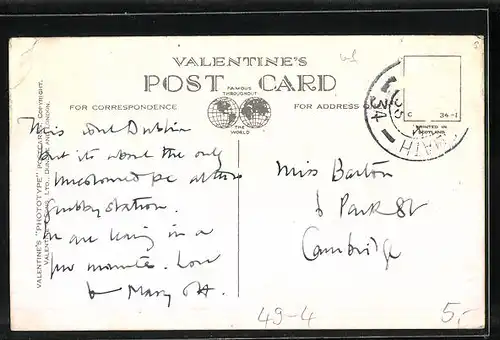 VALENTINE'S
POST CARD
FAMOUS
THROUGHOUT
THE
WORLD
FOR CORRESPONDENCE
FOR ADDRESS
C 34-1
PRINTED IN
SCOTLAND
VALENTINE'S "PHOTOTYPE" POSTCARD
COPYRIGHT.
VALENTINE & SONS, LTD., DUNDEE AND LONDON.
This Dublin
but it's about the only
uncoloured pc at this
grubby station.
We are leaving in a
few minutes. Love
Mary
Miss Barton
6 Park St
Cambridge
49-4
5,-